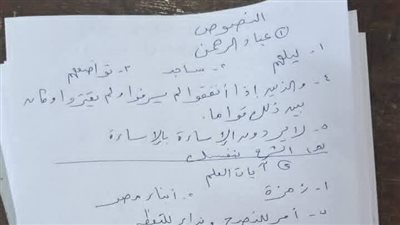 النصوص
① عباد الرحمن
١- ليلهم ٢- ساجد ٣- تواضعهم
٤- والذين إذا أنفقوا لم يسرفوا ولم يقتروا وكان
بين ذلك قواما.
٥- لا يردون الإساءة بالإساءة
اشرح بنفسك
② آيات العلم
١- زمزة ٢- أبناء مصر